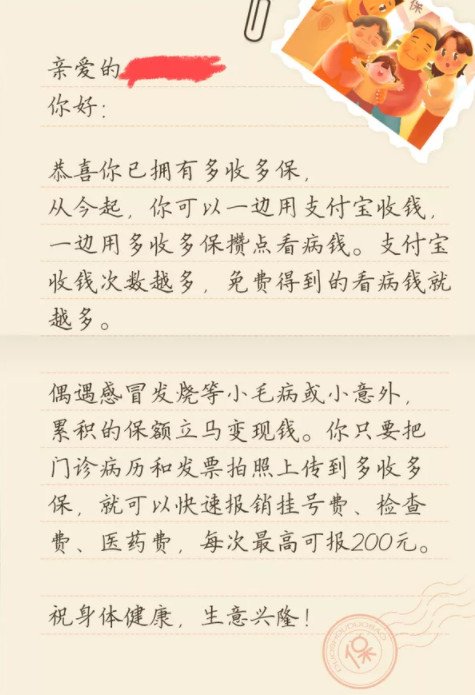 亲爱的
你好：
恭喜你已拥有多收多保，
从今起，你可以一边用支付宝收钱，
一边用多收多保攒点看病钱。支付宝
收钱次数越多，免费得到的看病钱就
越多。
偶遇感冒发烧等小毛病或小意外，
累积的保额立马变现钱。你只要把
门诊病历和发票拍照上传到多收多
保，就可以快速报销挂号费、检查
费、医药费，每次最高可报200元。
祝身体健康，生意兴隆！
保
保